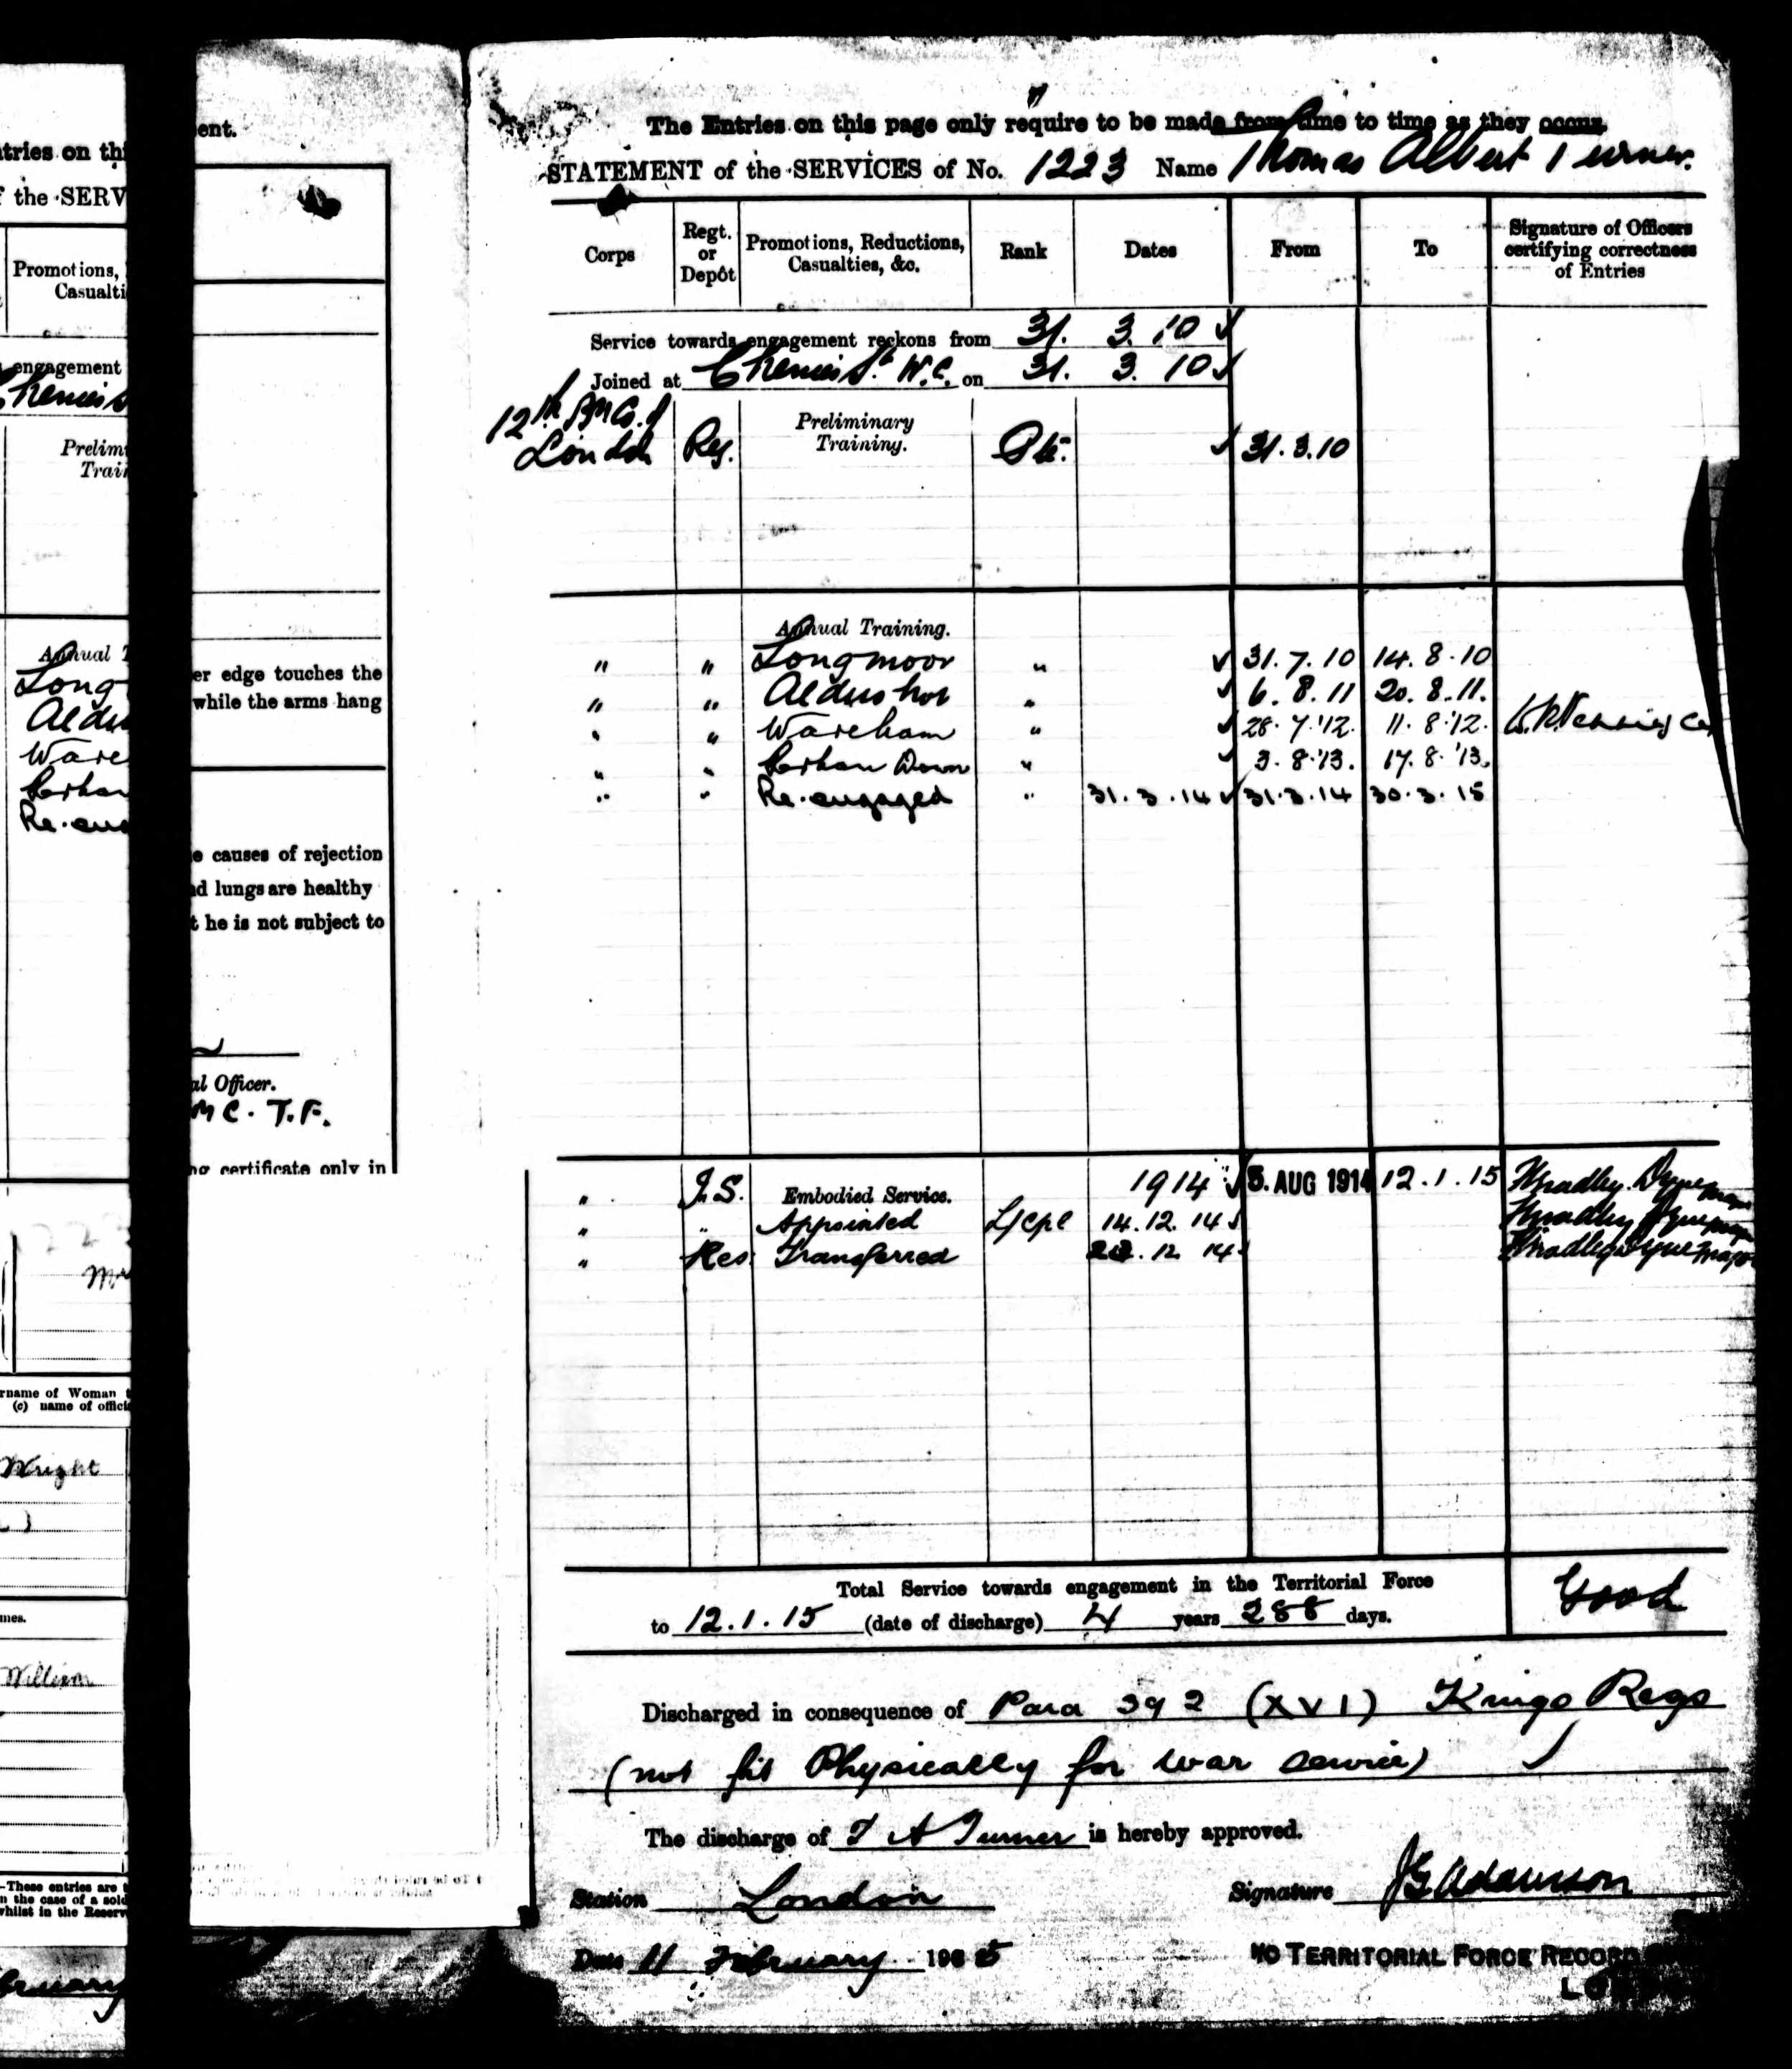 tries on thi
f the SERV
Promotions,
Casualti
engagement
Prelim
Train
Annual T
Long
Alder
Ware
Re. eng
1223
rname of Woman
(c) name of offici
Wright
mes.
William
-These entries are
n the case of a sold
whilst in the Reserv
bruary
ent.
er edge touches the
while the arms hang
e causes of rejection
nd lungs are healthy
t he is not subject to
al Officer.
MC. T.F.
ng certificate only in
The Entries on this page only require to be made from time to time as they occur.
STATEMENT of the SERVICES of No. 1223 Name Thomas Albert Turner.
Corps Regt. or Depôt Promotions, Reductions, Casualties, &c. Rank Dates From To Signature of Officers certifying correctness of Entries
Service towards engagement reckons from 31. 3. 10 ✓
Joined at Chenies St. W.C. on 31. 3. 10 ✓
12th Bn Co. of
London Reg. Preliminary Training. Pte. ✓ 31.3.10
Annual Training.
" " Longmoor " ✓ 31.7.10 14.8.10
" " Aldershot " ✓ 6.8.11 20.8.11.
" " Wareham " ✓ 28.7.'12. 11.8.'12.
" " Perham Down " ✓ 3.8.'13. 17.8.'13.
" " Re-engaged " 31.3.14 ✓ 31.3.14 30.3.15
" I.S. Embodied Service. 1914 ✓ 5. AUG 1914 12.1.15
" " Appointed L/Cpl 14.12.14 ✓
" Res. Transferred .12 14
Total Service towards engagement in the Territorial Force
to 12.1.15 (date of discharge) 4 years 288 days. Good
Discharged in consequence of Para 392 (XVI) Kings Regs
(not fit Physically for war service) ✓
The discharge of T A Turner is hereby approved.
Station London Signature J G Adamson
Date 11 February 1915
I/C TERRITORIAL FORCE RECORD
LONDON